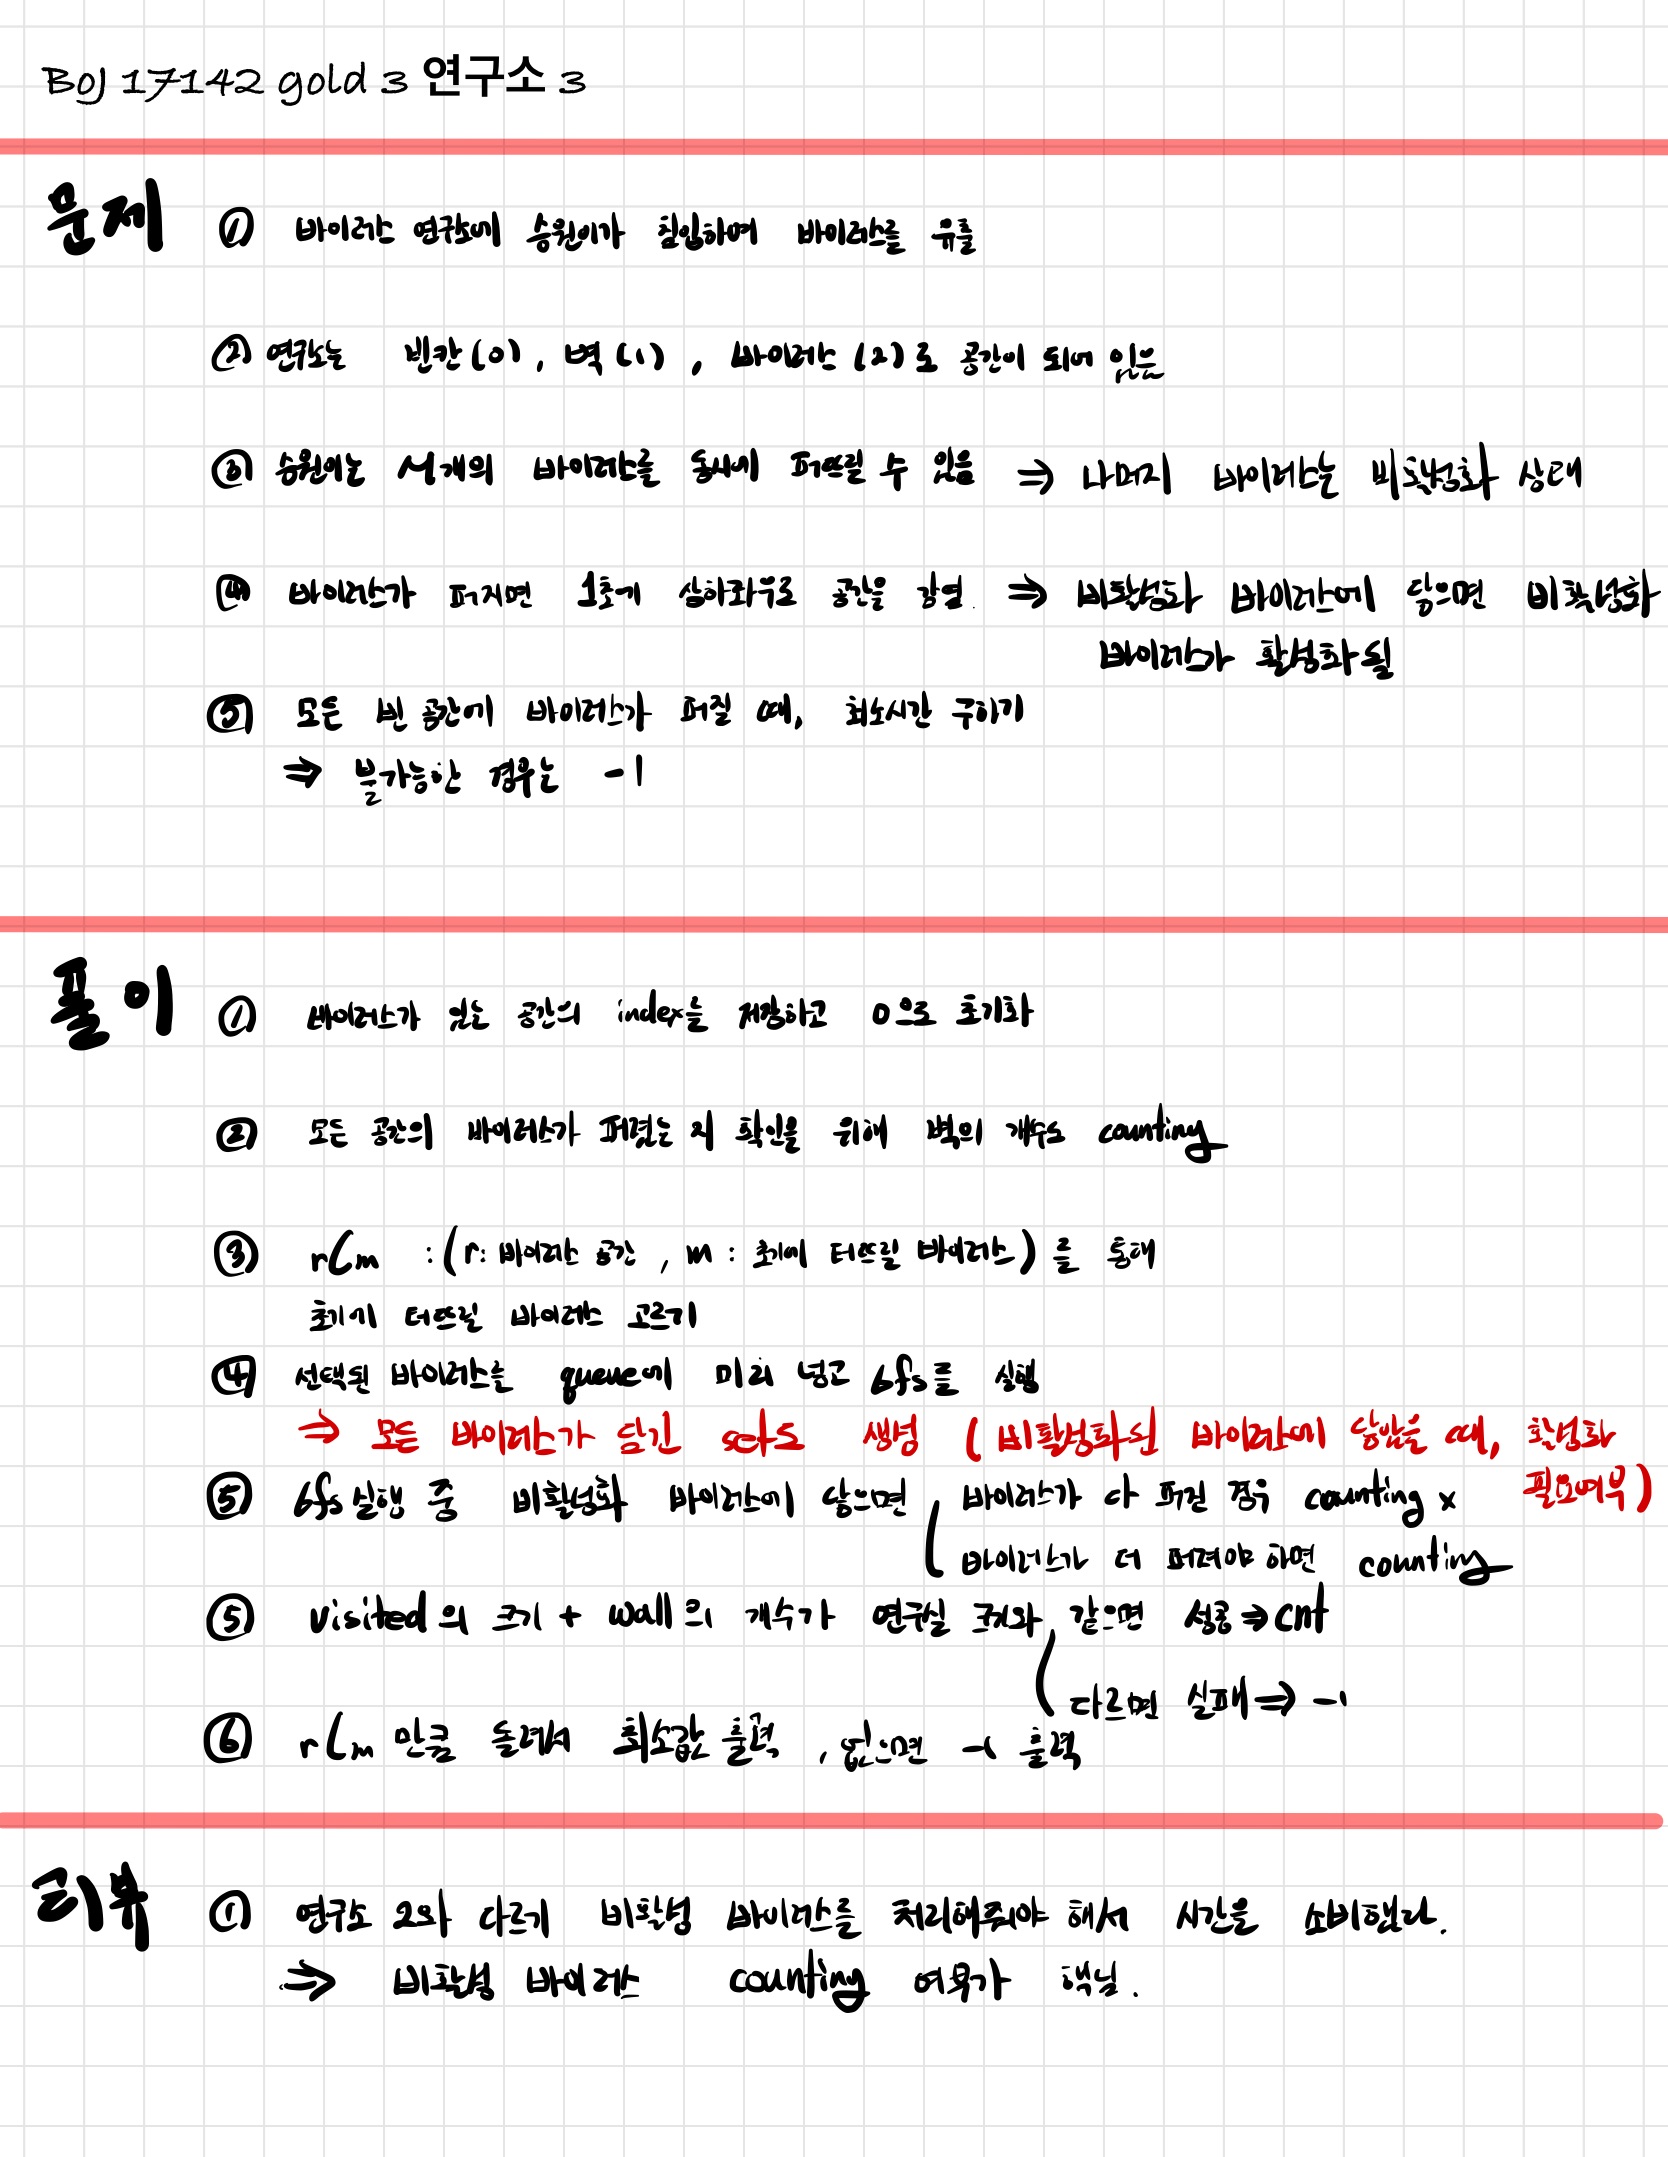 BOJ 17142 gold 3 연구소 3
문제
① 바이러스 연구소에 승원이가 침입하여 바이러스를 유출
② 연구소는 빈칸(0), 벽(1), 바이러스(2)로 공간이 되어 있은
③ 승원이는 M개의 바이러스를 동시에 퍼뜨릴 수 있음 ⇒ 나머지 바이러스는 비활성화 상태
④ 바이러스가 퍼지면 1초에 상하좌우로 공간을 감염. ⇒ 비활성화 바이러스에 닿으면 비활성화
바이러스가 활성화 됨
⑤ 모든 빈 공간에 바이러스가 퍼질 때, 최소시간 구하기
⇒ 불가능한 경우는 -1
풀이
① 바이러스가 있는 공간의 index를 저장하고 0으로 초기화
② 모든 공간의 바이러스가 퍼졌는지 확인을 위해 벽의 개수도 counting
③ rCm : (r: 바이러스 공간, m : 초기에 터뜨릴 바이러스)를 통해
초기에 터뜨릴 바이러스 고르기
④ 선택된 바이러스를 queue에 미리 넣고 bfs를 실행
⇒ 모든 바이러스가 담긴 set도 생성 (비활성화된 바이러스에 닿았을 때, 활성화
필요여부)
⑤ bfs 실행 중 비활성화 바이러스에 닿으면 바이러스가 다 퍼진 경우 counting x
바이러스가 더 퍼져야 하면 counting
⑤ visited의 크기 + wall의 개수가 연구실 크기와 같으면 성공 ⇒ cnt
다르면 실패 ⇒ -1
⑥ rCm 만큼 돌려서 최소값 출력, 없으면 -1 출력
리뷰
① 연구소 2와 다르게 비활성 바이러스를 처리해줘야 해서 시간을 소비했다.
⇒ 비활성 바이러스 counting 여부가 핵심.